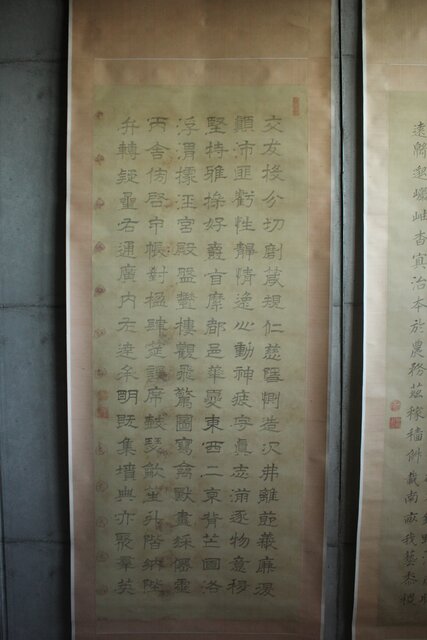 交友投分切劘箴規仁慈隱惻造次弗離節義廉退
顛沛匪虧性靜情逸心動神疲守真志滿逐物意移
堅持雅操好爵自縻都邑華夏東西二京背芒面洛
浮渭據涇宮殿盤鬱樓觀飛驚圖寫禽獸畫綵僊靈
丙舍傍啓甲帳對楹肆筵設席鼓瑟吹笙升階納陛
弁轉疑星右通廣內左達承明既集墳典亦聚羣英
遠緜邈巖岫杳冥治本於農務茲稼穡俶載南畝我藝黍稷